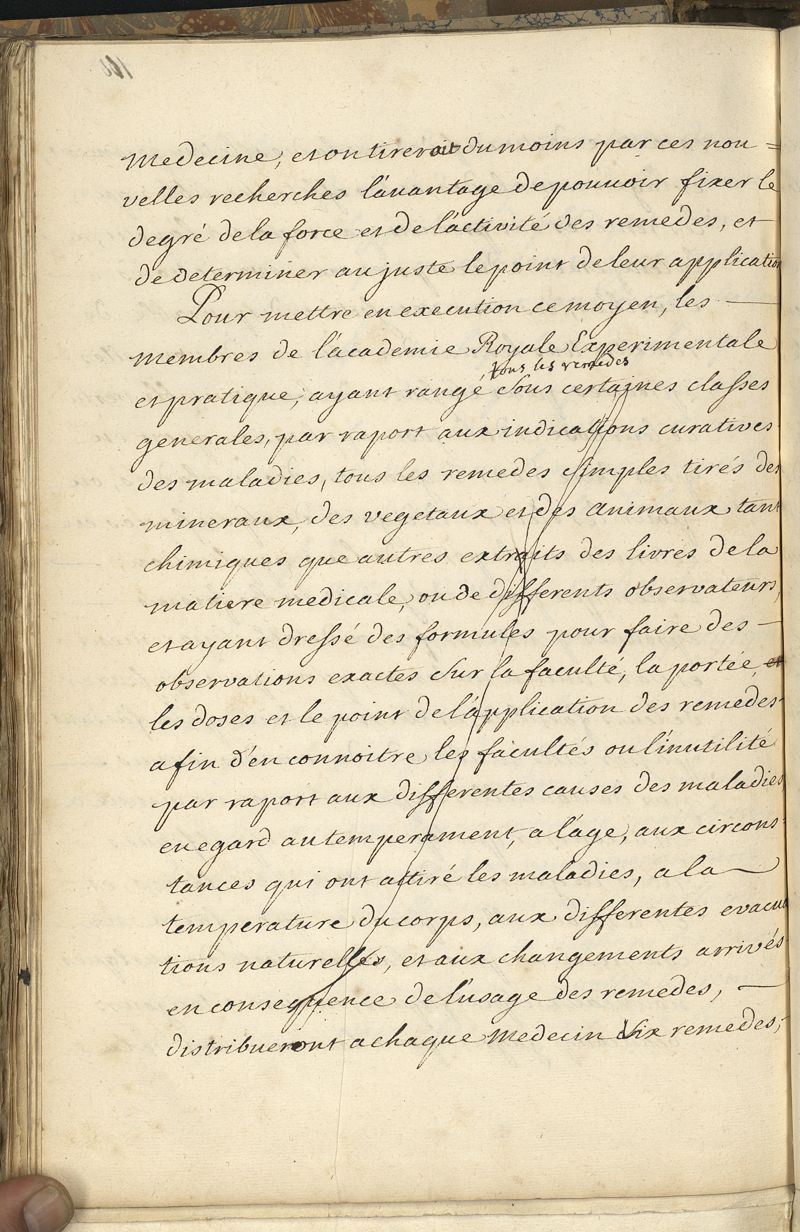 medecine, et on tireroit du moins par ces nou =
velles recherches l'avantage de pouvoir fixer le
degré de la force et de l'activité des remedes, et
de determiner au juste le point de leur application
Pour mettre en execution ce moyen, les
membres de l'academie Royale Experimentale
tous les remedes
et pratique, ayant rangé sous certaines classes
generales, par raport aux indications curatives
des maladies, tous les remedes simples tirés des
mineraux, des vegetaux et des animaux tant
chimiques que autres extraits des livres de la
matiere medicale, ou de differents observateurs,
et ayant dressé des formules pour faire des
observations exactes sur la faculté, la portée, et
les doses et le point de l'application des remedes
afin d'en connoitre les facultés ou l'inutilité
par raport aux differentes causes des maladies
en egard au temperament, a l'age, aux circons
tances qui ont attiré les maladies, a la
temperature du corps, aux differentes evacua
tions naturelles, et aux changements arrivés
en consequence de l'usage des remedes,
distribueront a chaque medecin six remedes,